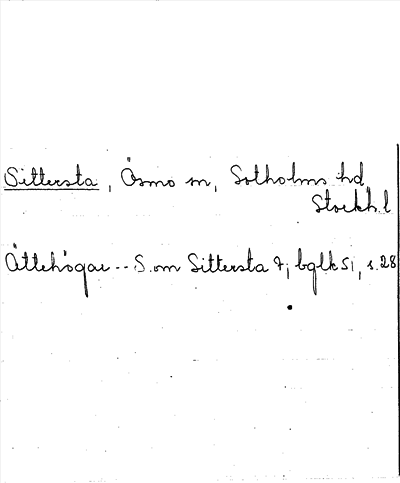 Sittersta, Ösmo sn, Sotholms hd,
Stockh. l
Ättehögar -- S. om Sittersta 7; bglk 51, s. 28